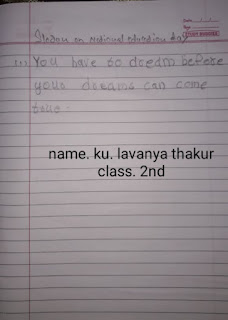 on National education day
(1) You have to dream before
your dreams can come
true.
name. ku. lavanya thakur
class. 2nd